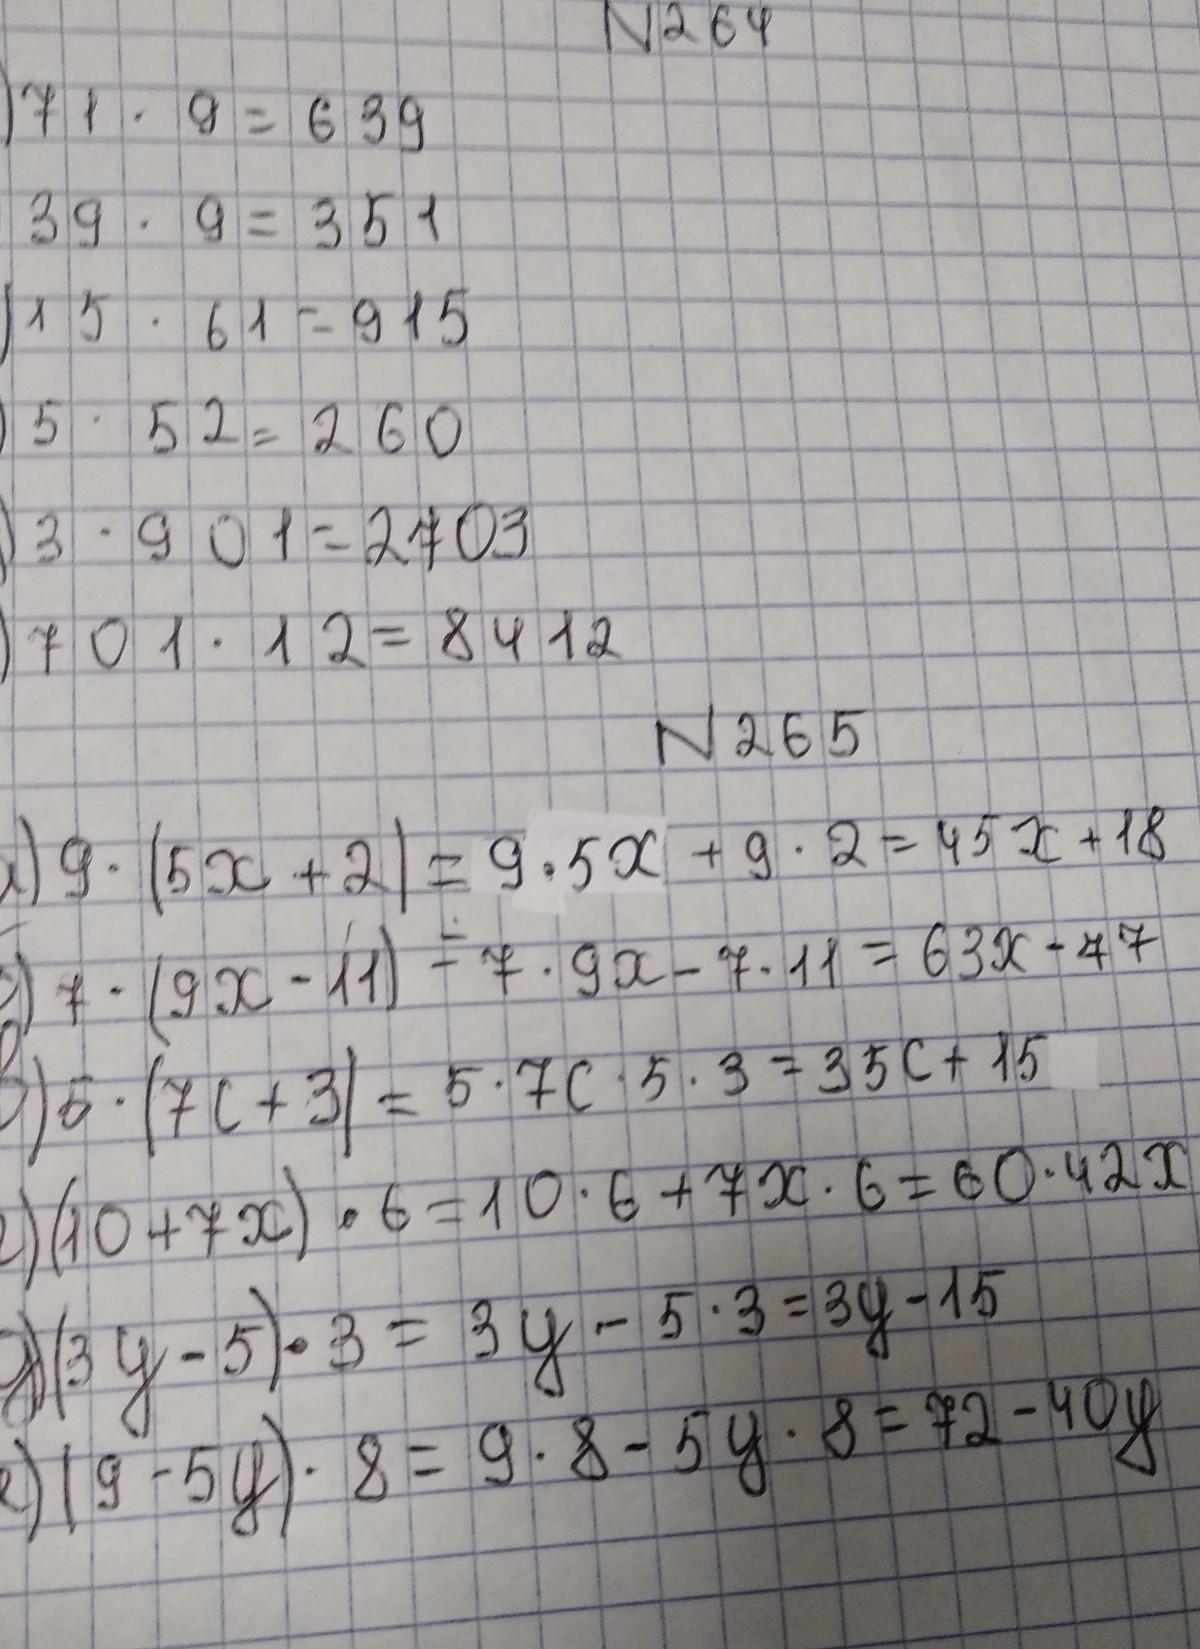 N264
)71 · 9 = 639
39 · 9 = 351
)15 · 61 = 915
)5 · 52 = 260
)3 · 901 = 2703
)701 · 12 = 8412
N265
а) 9 · (5x + 2) = 9 · 5x + 9 · 2 = 45x + 18
б) 7 · (9x - 11) = 7 · 9x - 7 · 11 = 63x - 77
в) 5 · (7c + 3) = 5 · 7c · 5 · 3 = 35c + 15
г) (10 + 7x) · 6 = 10 · 6 + 7x · 6 = 60 · 42x
д) (3y - 5) · 3 = 3y - 5 · 3 = 3y - 15
е) (9 - 5y) · 8 = 9 · 8 - 5y · 8 = 72 - 40y